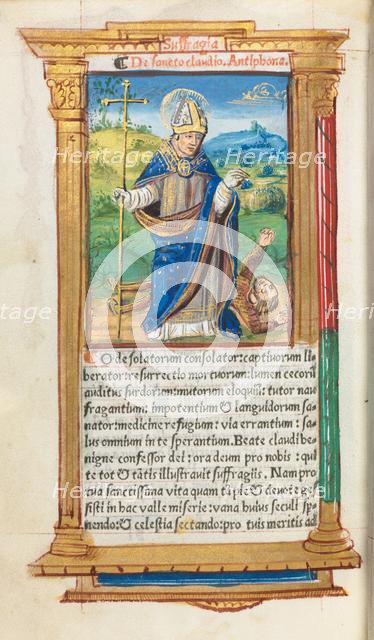 Suffragia
De sancto claudio. Antiphona.
O desolatorum consolator: captiuorum li
berator: resurrectio mortuorum: lumen cecorũ
auditus surdorum: mutorum eloquiũ: tutor nau
fragantium: impotentium & languidorum sa
nator: medicine refugium: via errantium: sa
lus omnium in te sperantium. Beate claudi be
nigne confessor dei: ora deum pro nobis: qui
te tot & tãtis illustrauit suffragiis. Nam pro
tua sanctissima vita quam tã pie & deuote ges
sisti in hac valle miserie: vana huius seculi sper
nendo: & celestia sectando: pro tuis meritis ad
Heritage
Heritage
Heritage
Heritage
Heritage
Heritage